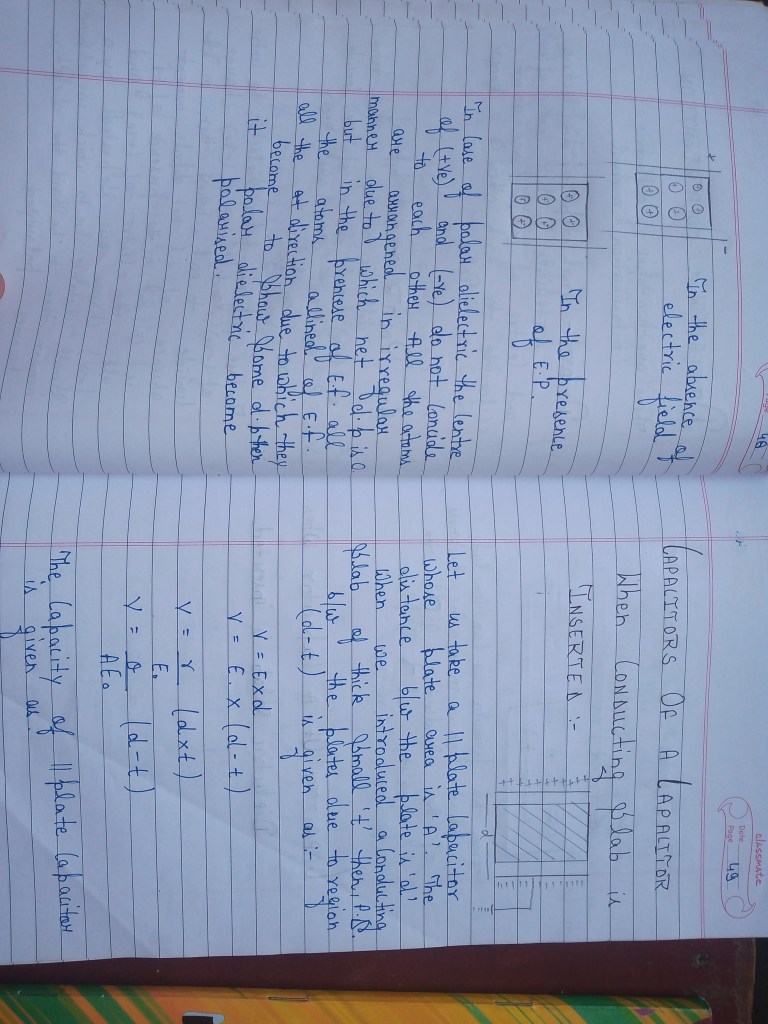 Page 48
+ -
In the absence of
electric field
In the presence
of E.P.
In case of polar dielectric the centre
of (+ve) and (-ve) do not concide
to each other. All the atoms
are arrangened in irregular
manner due to which net d.p is 0
but in the prencese of E.f. all
the atoms allined of E.f.
all the at direction due to which they
become to show some d.p then
it polar dielectric become
polarised.
classmate
Date
Page 49
CAPACITORS OF A CAPACITOR
When CONDUCTING slab is
INSERTED :-
d
Let us take a || plate capacitor
whose plate area is 'A'. The
distence b/w the plate is 'd'
when we introduced a conducting
slab of thick small 't' then P.D.
b/w the plates due to region
(d-t) is given as :-
V = E x d
V = E . x (d - t)
V = γ (d x t)
E₀
V = Q (d - t)
AE₀
The capacity of || plate capacitor
is given as